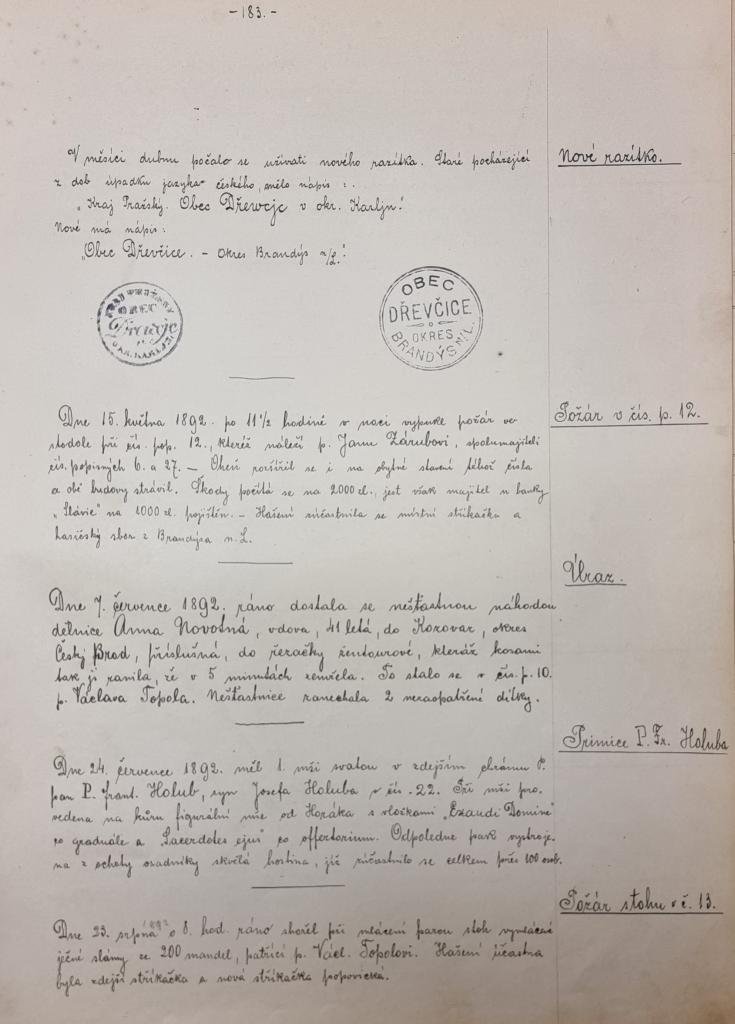 - 183. -
V měsíci dubnu počalo se užívati nového razítka. Staré pocházející
z dob úpadku jazyka českého, mělo nápis :.
„Kraj Pražský. Obec Dřewcjc v okr. Karljn.“
Nové má nápis:
„Obec Dřevčice. - Okres Brandýs n/L.“
Nové razítko.
OBEC
Dřewcjc
OKR. KARLJN
OBEC
DŘEVČICE
OKRES
BRANDÝS N/L.
Dne 15. května 1892. po 11 1/2 hodině v noci vypukl požár ve
stodole při čís. pop. 12., kteréž náleží p. Janu Zárubovi, spolumajiteli
čís. popisných 6. a 27. — Oheň rozšířil se i na obytné stavení téhož čísla
a obě budovy strávil. Škody počítá se na 2000 zl., jest však majitel u banky
„Slávie“ na 1000 zl. pojištěn. — Hašení súčastnila se místní stříkačka a
hasičský sbor z Brandýsa n. L.
Požár v čís. p. 12.
Dne 7. července 1892. ráno dostala se nešťastnou náhodou
dělnice Anna Novotná, vdova, 41 letá, do Kozovaz, okres
Český Brod, příslušná, do řezačky žentourové, kteráž kosami
tak ji ranila, že v 5 minutách zemřela. To stalo se v čís. p. 10.
p. Václava Topola. Nešťastnice zanechala 2 nezaopatřené dítky.
Úraz.
Dne 24. července 1892. měl 1. mši svatou v zdejším chrámu P.
pan P. Frant. Holub, syn Josefa Holuba v čís. 22. Při mši pro-
vedena na kůru figurální mše od Horáka s vložkami „Exaudi Domine“
co graduále a „Sacerdotes ejus“ co offertorium. Odpoledne pak vystroje-
na z ochoty osadníky skvělá hostina, jíž súčastnilo se celkem přes 100 osob.
Primice P. Fr. Holuba
Dne 23. srpna 1892 o 8. hod. ráno shořel při mlácení parou stoh vymlácené
ječné slámy ze 200 mandel, patřící p. Václ. Topolovi. Hašení účastna
byla zdejší stříkačka a nová stříkačka popovická.
Požár stohu v č. 13.